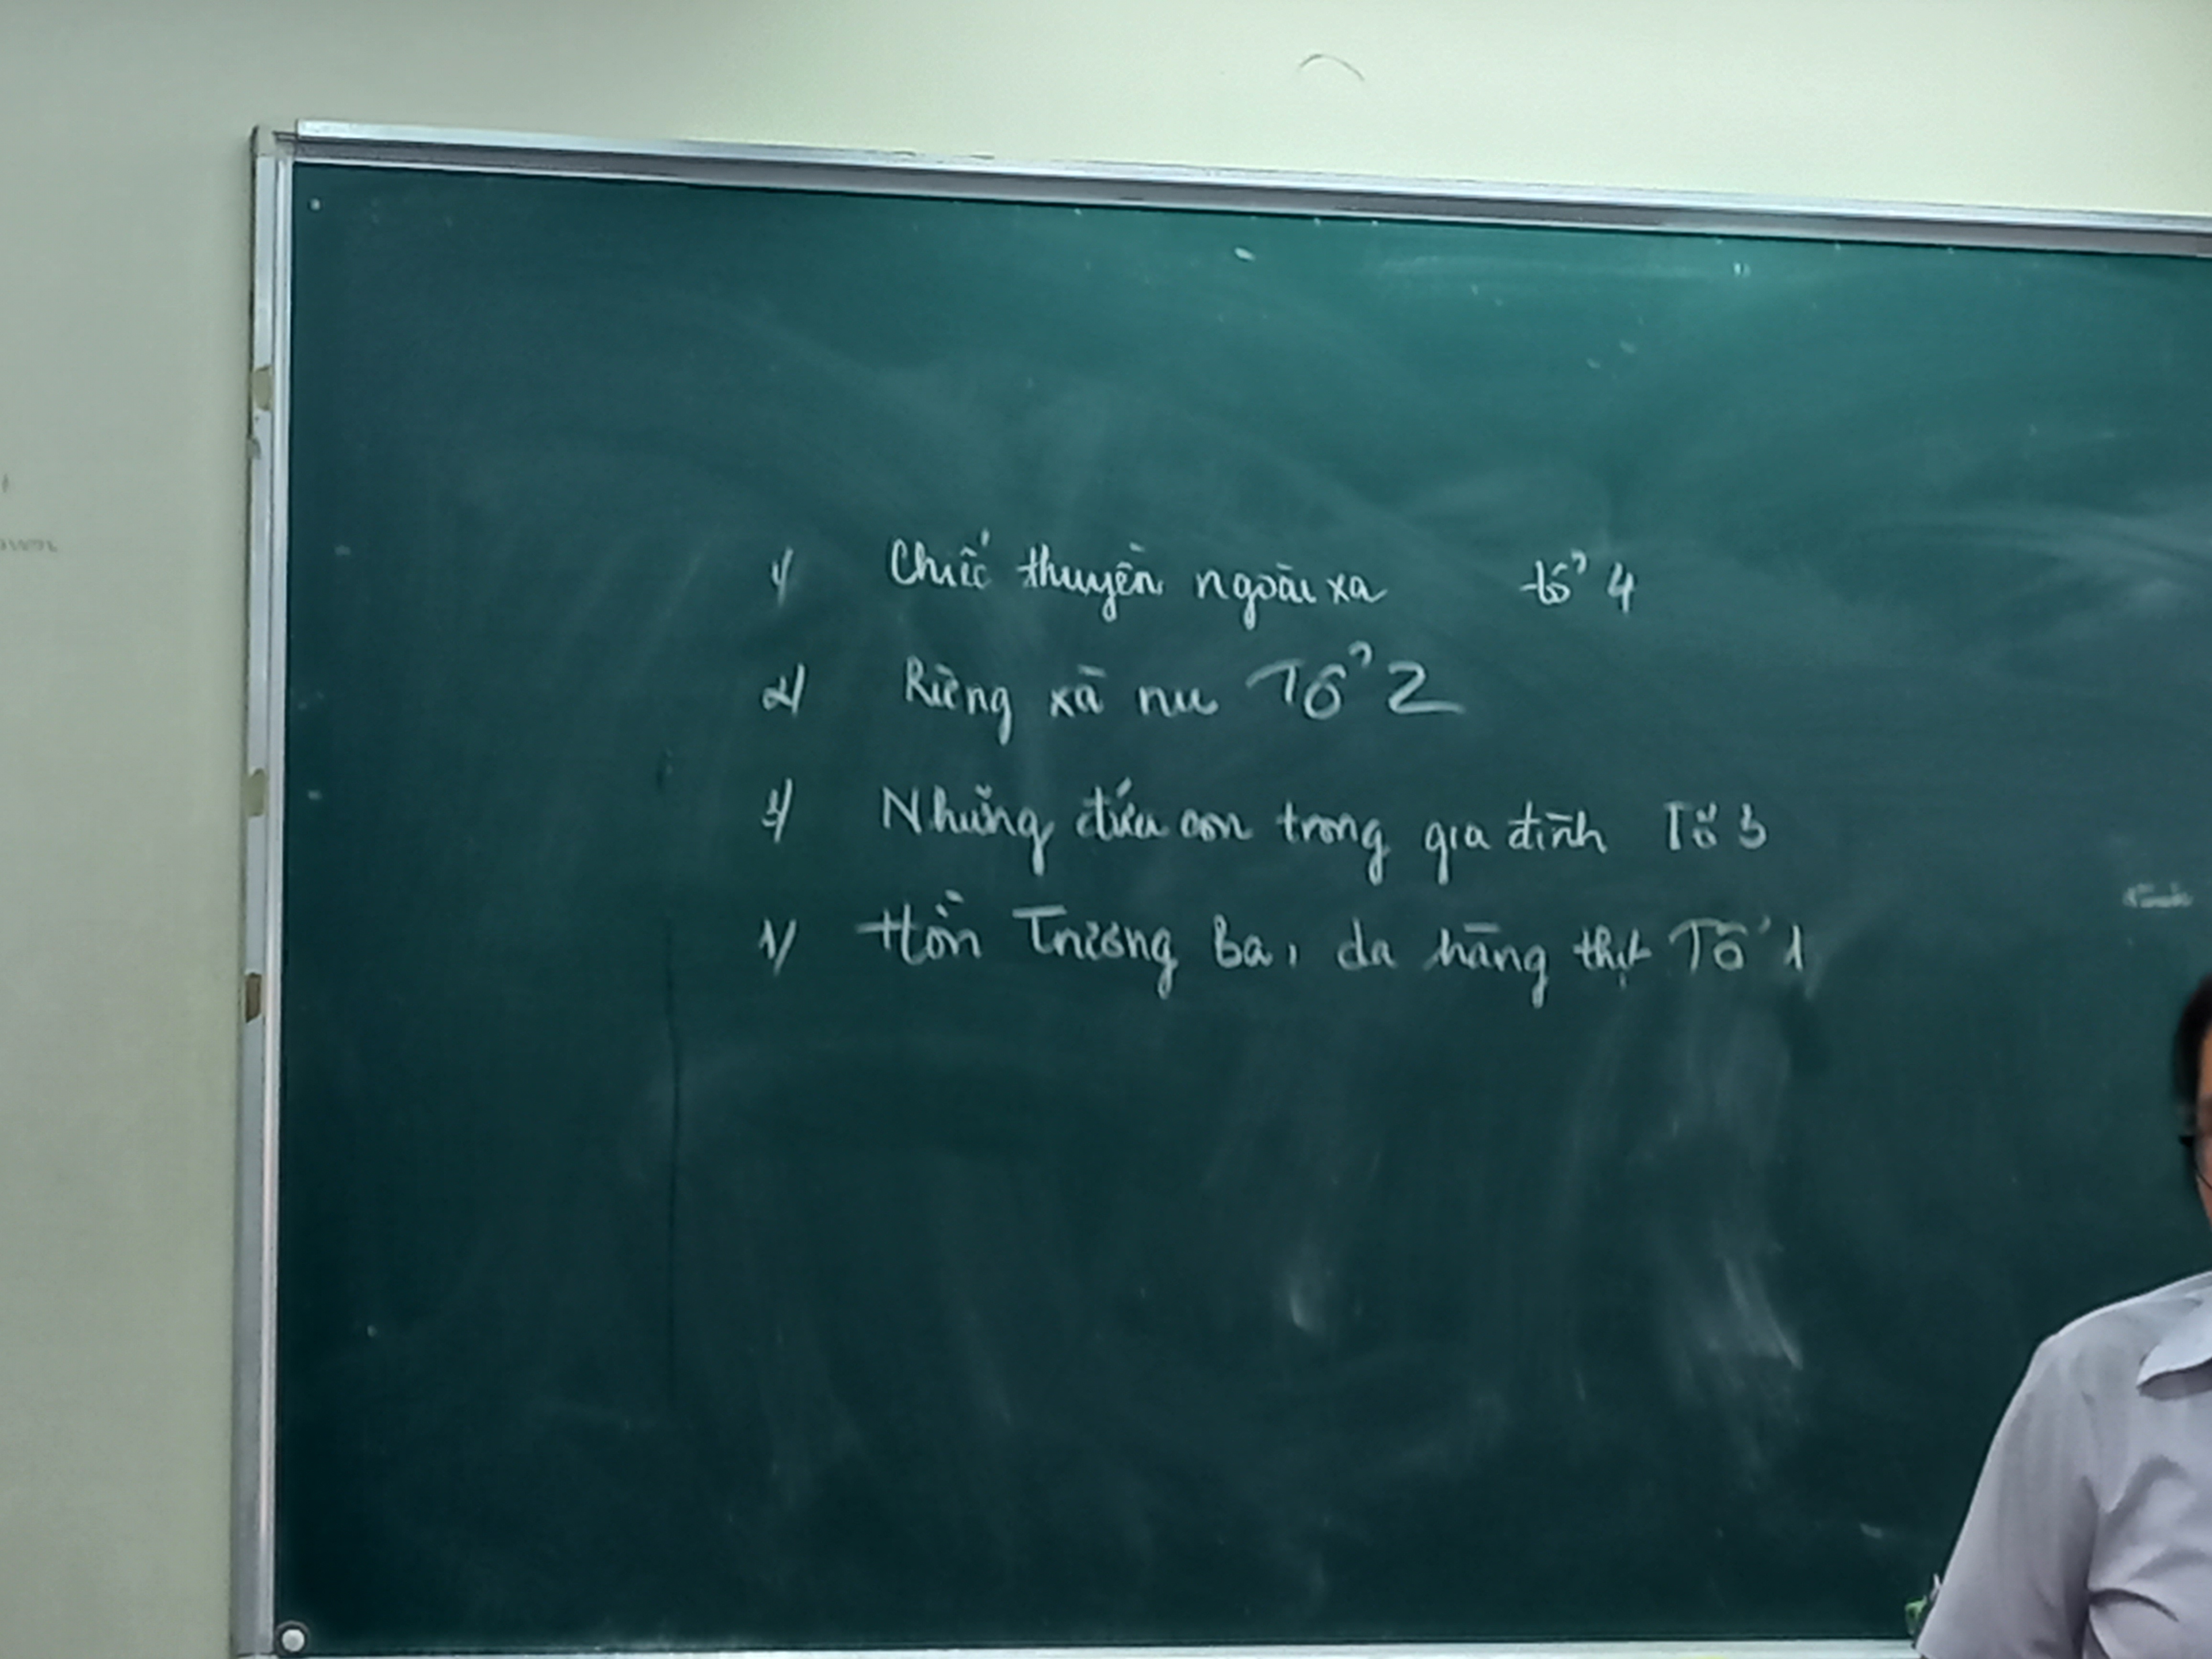 1/ Chiếc thuyền ngoài xa tổ 4
2/ Rừng xà nu Tổ 2
3/ Những đứa con trong gia đình Tổ 3
1/ Hồn Trương Ba, da hàng thịt Tổ 1